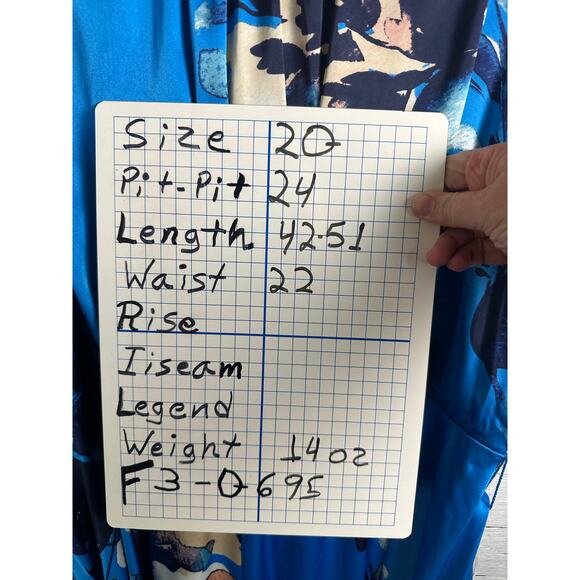 Size 20
Pit-Pit 24
Length. 42-51
Waist 22
Rise
Iiseam
Legend
Weight 14 oz
F3-0695